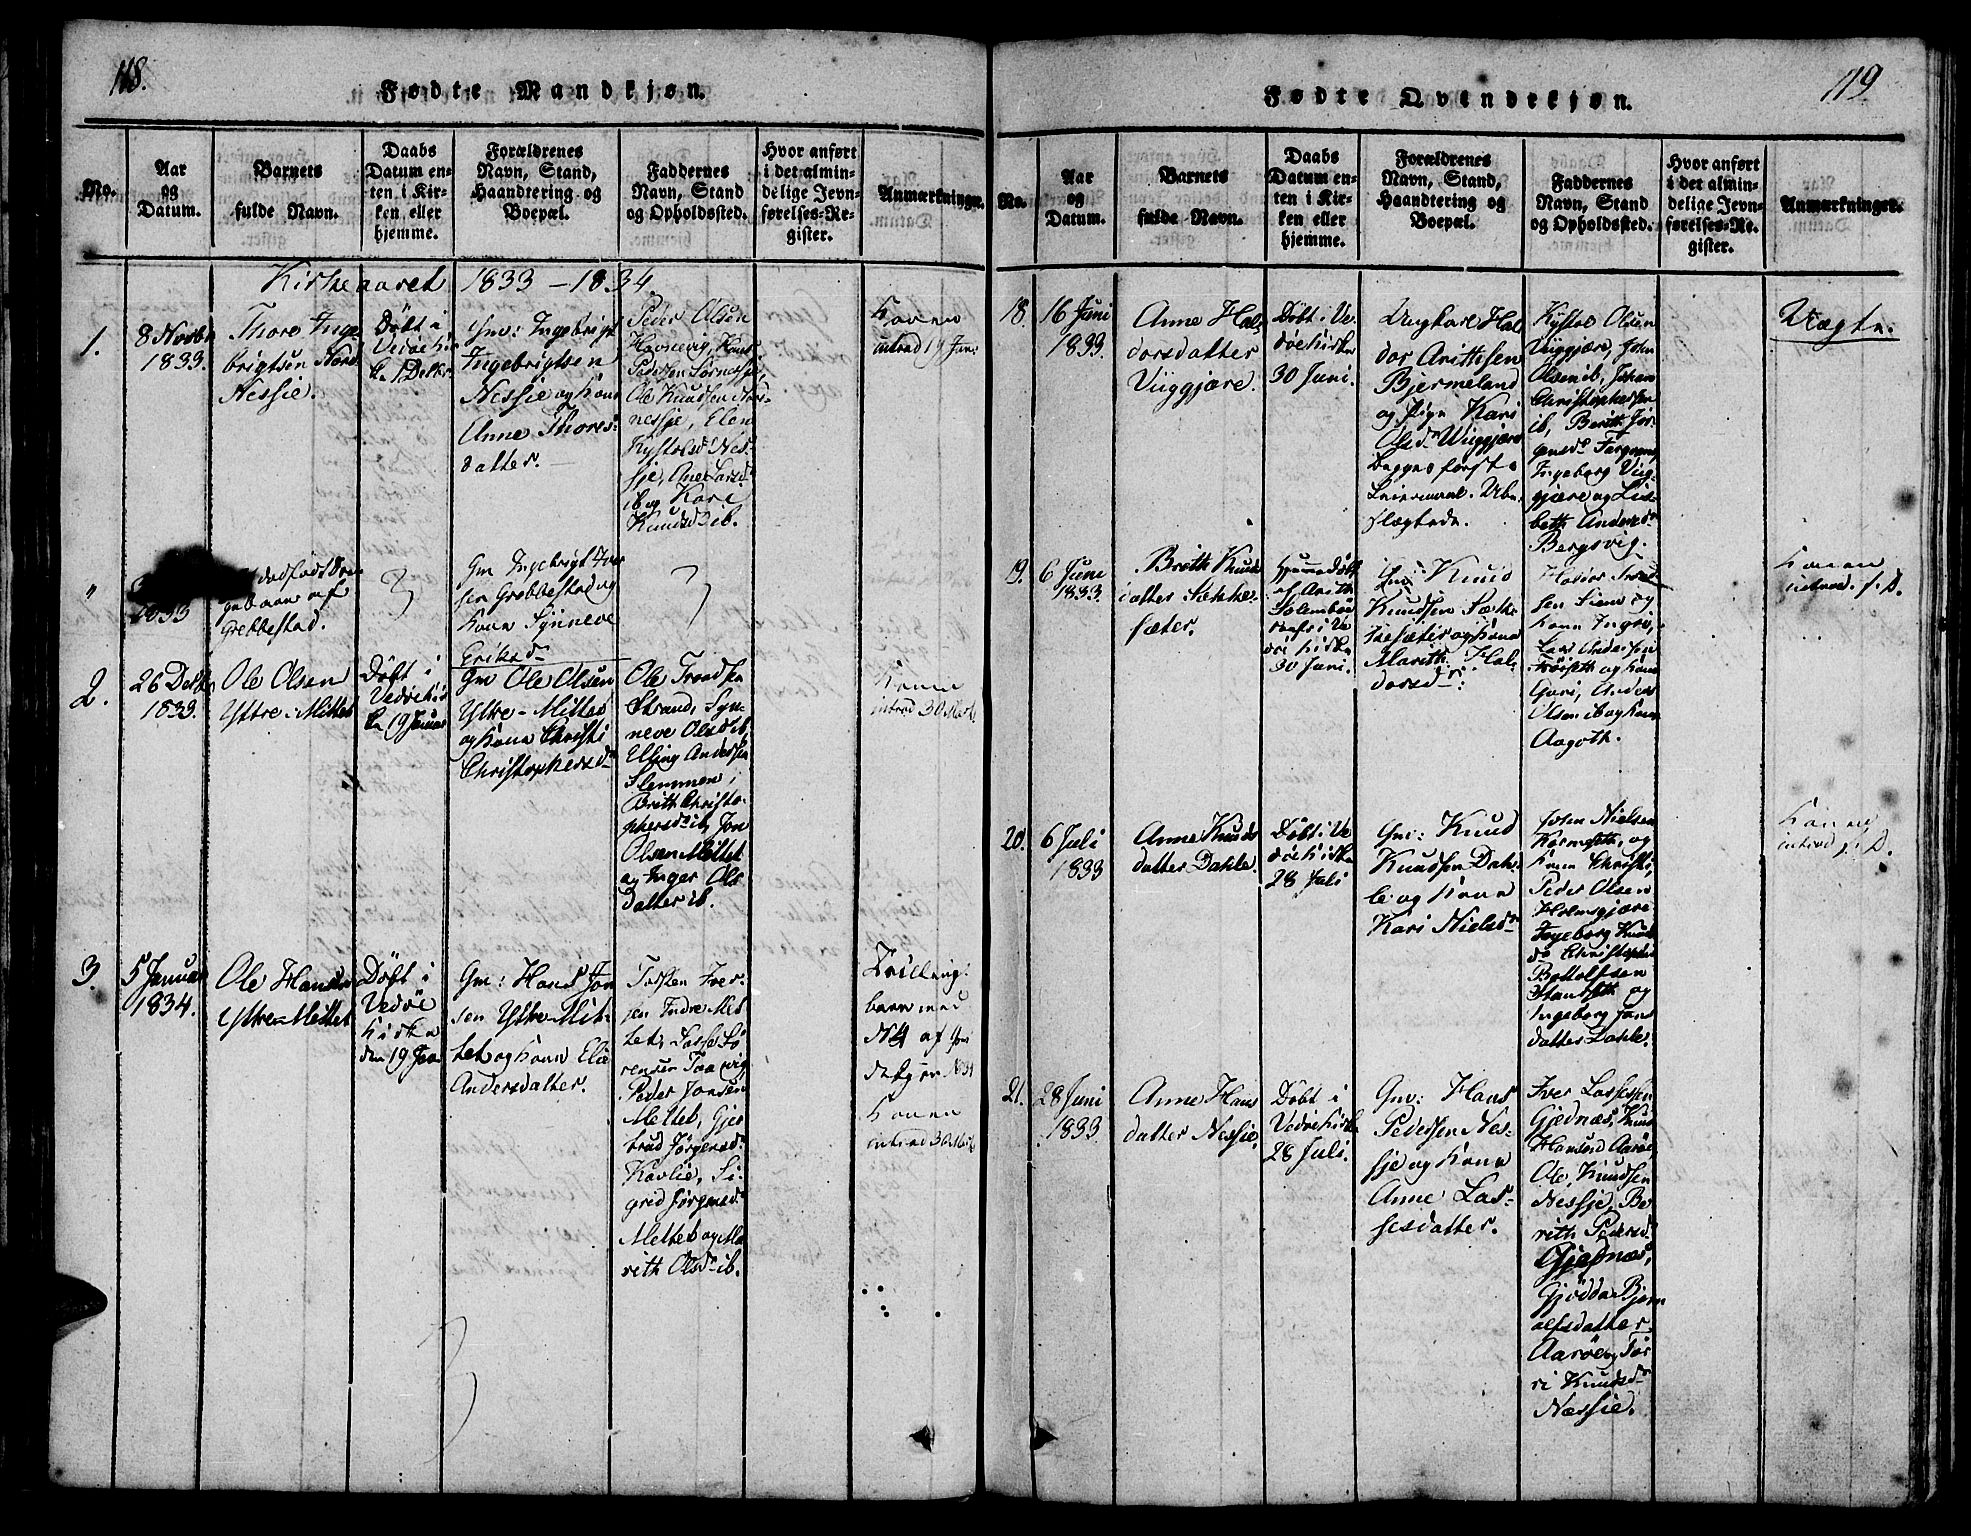 118.
Fødte Mandkjøn.
No.
Aar
og
Datum.
Barnets
fulde Navn.
Daabs
Datum en-
ten i Kir-
ken eller
hjemme.
Forældrenes
Navn, Stand,
Haandtering og
Boepæl.
Faddernes
Navn, Stand
og Opholdssted.
Hvor anført
i det almin-
delige Jevn-
førelses-Re-
gister.
Anmærkninger.
Kirkeaaret 1833 - 1834.
1.
8 Novbr
1833.
Thore Inge
brigtsen Nord
Nessie.
Døbt i
Vedøekir
ke 1 Decbr.
Gm: Ingebrigt
Ingebrigtsen
Nessie og Kone
Anne Thores-
datter.
Peder Olsen
Havnevig, Hans
Pedersen Sørnessje,
Ole Knudsen Nor-
nessje, Elen
Kystolsd Nes-
sje, Ane Larsd
ib og Kari
Knudsd ib.
Konen
introd 19 Jan:
"
1833
dødfødt Dren
gebarn af
Grebbestad.
Gm Ingebrigt Iver
sen Grebbestad og
Kone Synneve
Eriksd
2.
26 Decbr
1833.
Ole Olsen
Ytre-Mittet
Døbt i
Vedøekir
ke 19 Januar
Gm Ole Olsen
Ytre-Mittet
og Kone Christi
Christophersd
Ole Trondsen
Strand, Syn-
neve Olsd ib,
Elling Andersen
Flemmen,
Brith Christo-
phersd ib, Jon
Olsen Mittet
og Inger Ols
datter ib.
Konen
introd 30 Marts
3.
5 Januar
1834.
Ole Hansen
Ytre-Mittet
Døbt i
Vedøe
Kirke
den 19 Jan
Gm: Hans Jon
sen Ytre-Mit-
tet og Kone Eli
Andersdatter.
Torsten Iver-
sen Indre Mit-
tet, Lasse Sø
rensen Taarvig
Peder Jonsen
Mittet, Gjer
trud Jørgensd
Kavlie, Si-
grid Jørgensd
Mittet og Ma
rith Olsd ib.
Tvilling-
barn med
N 4 af
1834
Konen
introd 30 Marts
119
Fødte Qvindekjøn.
No.
Aar
og
Datum.
Barnets
fulde Navn.
Daabs
Datum en-
ten i Kir-
ken eller
hjemme.
Forældrenes
Navn, Stand,
Haandtering og
Boepæl.
Faddernes
Navn, Stand
og Opholdssted.
Hvor anført
i det almin-
delige Jevn-
førelses-Re-
gister.
Anmærkninger.
18.
16 Juni
1833.
Anne Hal-
dorsdatter
Viiggjære.
Døbt i Ve-
døekirke
30 Juni.
Ungkarl Hal
dor Arittesen
Bjermeland
og Pige Kari
Olsd Wiiggjære
begges første
Leiermaal. Ube-
slægtede.
Kystol Olsen
Viiggjære, John
Olsen ib, Johan
Christophersen
ib, Berith Jør-
gensd
Ingeborg Viig-
gjære og Lis-
beth Andersd
Bergsvig.
Uægte.
19.
6 Juni
1833.
Brith Knud
datter Sække-
sæter.
Hjemmedøbt
af Arith
30 Juni.
Gm: Knud
Knudsen Sæk-
kesæter og Kone
Marith Hal-
dorsd:
Kone Inger,
Lars Andersen
Frøseth og Kone
Guri, Anders
Olsen ib og Kone
Aagoth.
Konen
introd. s. D.
20.
6 Juli
1833
Anne Knuds
datter Dahle.
Døbt i Ve-
døekirke
28 Juli
Gm: Knud
Knudsen Dah-
le og Kone
Kari Nielsd
John Nielsen
Kormseth, og
Kone Christi,
Peder Olsen
Holmsgjære
Ingeborg Knuds
d Christopher
Bottolfsen
Standseth og
Ingeborg Jons
datter Dahle.
Konen
introd s. D.
21.
28 Juni
1833.
Anne Hans
datter Nessie.
Døbt i
Vedøekirke
28 Juli.
Gm: Hans
Pedersen Nes-
sje og Kone
Anne Las-
sesdatter.
Iver Lassesen
Gjednæs, Knud
Hansen Aarøe,
Ole Knudsen
Nessje, Be-
rith Pedersd
Gjednæs,
Gjødda Bjørn
olfsdatter
Aarøe og Tor
ri Knudsd
Næssie.